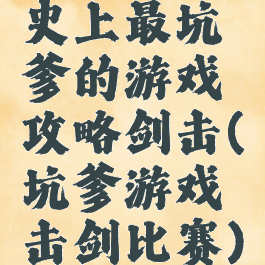 史上最坑
爹的游戏
攻略剑击(
坑爹游戏
击剑比赛)